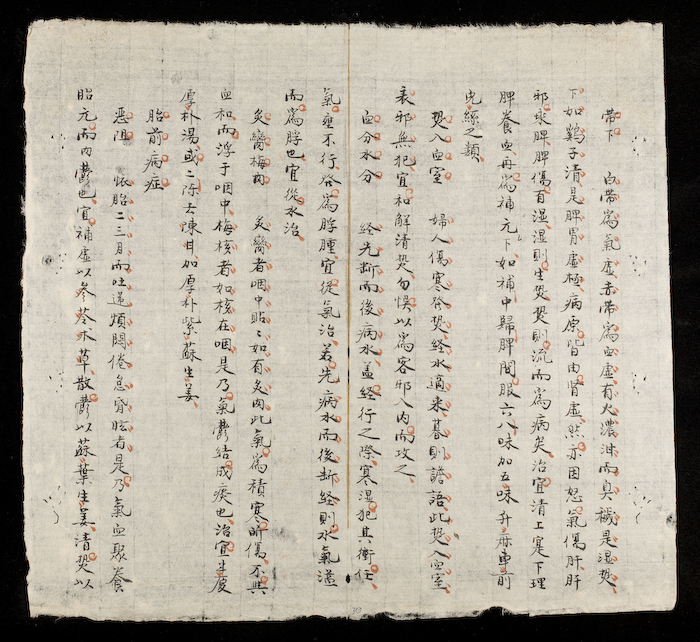 帶下 白帶為氣虛赤帶為血虛有火濃泔而臭穢是湿㷫
下如鷄子清是脾胃虛極病原皆由肾虛然亦因怒氣傷肝肝
邪乘脾脾傷百湿湿則生㷫㷫則流而為病矣治宜清上寔下理
脾養血再為補元下如補中歸脾間服六八味加五味升麻車前
兔絲之類
㷫入血室 婦人傷寒發㷫経水適来暮則譫語此㷫入血室
表邪無犯宜和解清㷫勿悞以為客邪入內而攻之
血分水分 経先断而後病水盖経行之際寒湿犯其衝任
氣壅不行發為脬腫宜從氣治若先病水而後断経則水氣溢
而為脬也宜從水治
炙臠梅核 炙臠者咽中貼〻如有炙肉此氣為積寒所傷不與
血和而浮于咽中梅核者如核在咽是乃氣鬱結成痰也治宜半夏
厚朴湯或二陈去陳甘加厚朴紫蘇生姜
胎前病症
恶阻 怀胎二三月而吐逆煩悶倦怠脊眩者是乃氣血聚養
胎元而內鬱也宜補虛以参苓术草散鬱以蘇葉生姜清㷫以